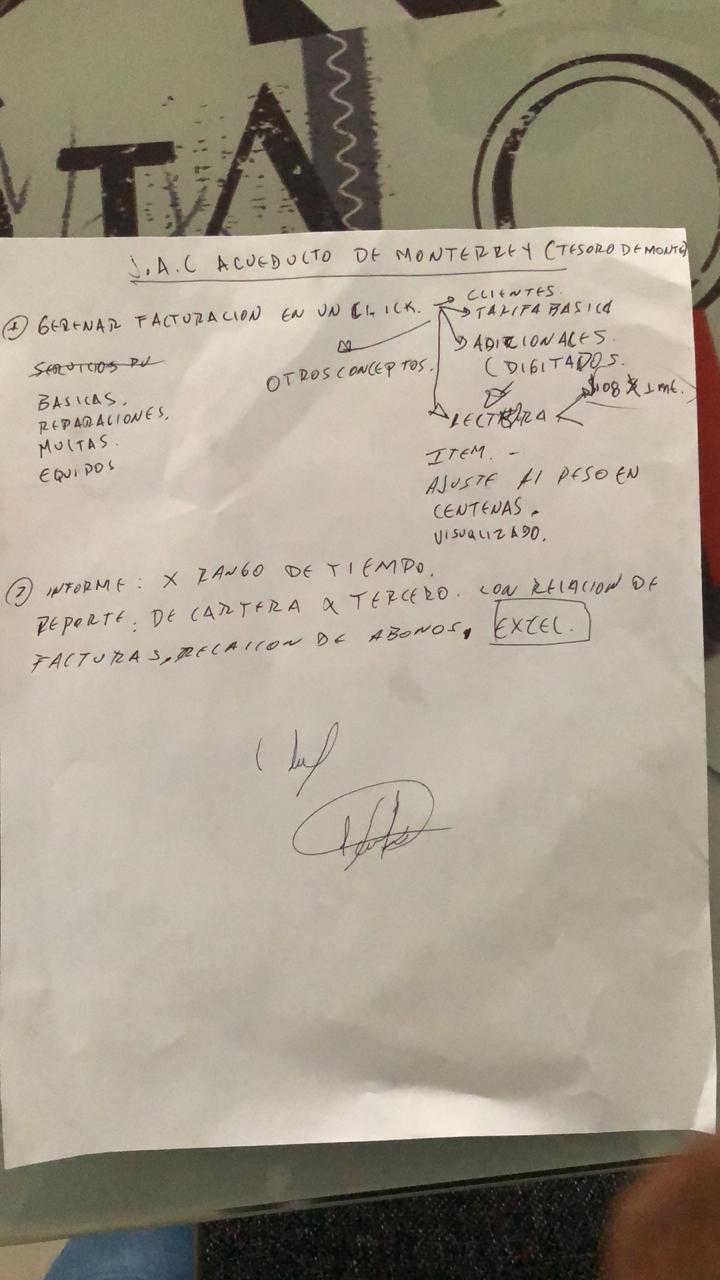 J.A.C ACUEDUCTO DE MONTERREY (TESORO DE MONTE)
1 GERENAR FACTURACION EN UN CLICK.
CLIENTES.
TARIFA BASICA
ADICIONALES.
(DIGITADOS.
OTROS CONCEPTOS.
LECTURA
SERVICIOS PU
BASICAS.
REPARACIONES.
MULTAS.
EQUIPOS
ITEM. -
AJUSTE AL PESO EN
CENTENAS.
VISUALIZADO.
2 INFORME: X RANGO DE TIEMPO.
REPORTE: DE CARTERA X TERCERO. CON RELACION DE
FACTURAS, RELACION DE ABONOS, EXCEL.